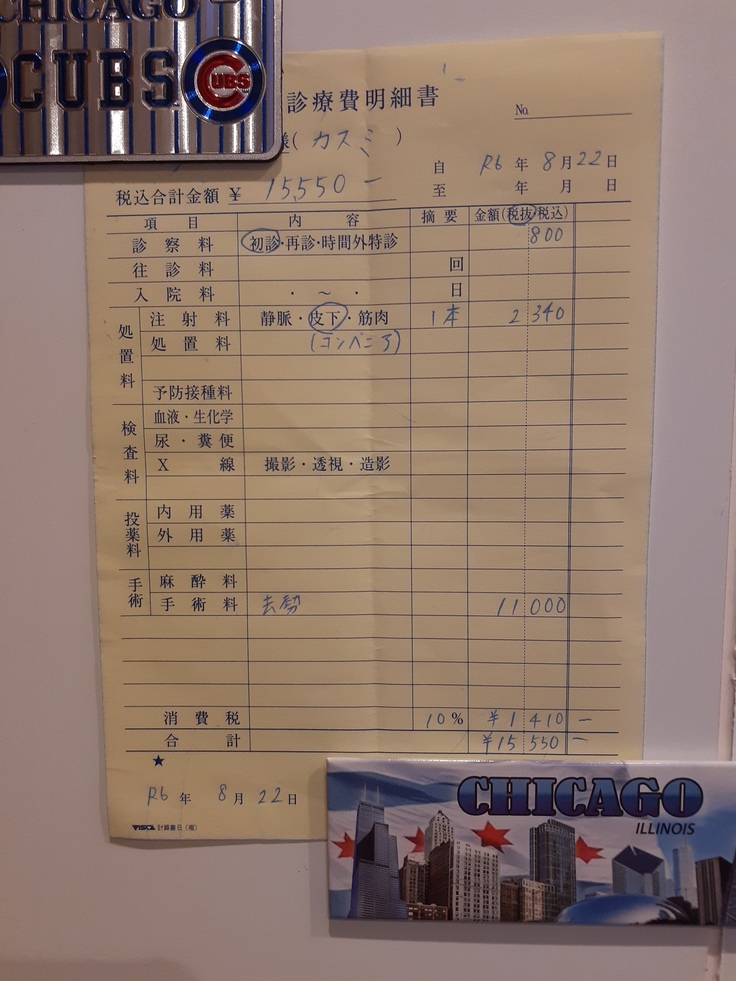 CHICAGO
CUBS
CUBS
診療費明細書
No.
様( カスミ )
自 R6 年 8 月 22 日
税込合計金額 ¥ 15,550 −
至 年 月 日
項 目 内 容 摘 要 金額(税抜・税込)
診 察 料 初診・再診・時間外特診 800
往 診 料 回
入 院 料 ・ ~ ・ 日
処置料
注 射 料 静脈・皮下・筋肉 1本 2 340
処 置 料 (コンベニア)
予防接種料
検査料
血液・生化学
尿 ・ 糞 便
X 線 撮影・透視・造影
投薬料
内 用 薬
外 用 薬
手術
麻 酔 料
手 術 料 去勢 11 000
消 費 税 10% ¥1 410 −
合 計 ¥15 550 −
★
R6 年 8 月 22 日
VISCA
CHICAGO
ILLINOIS